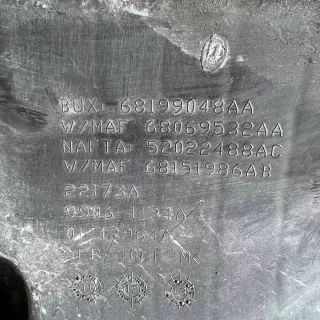 BUX: 68199048AA
W/MAF 68069532AA
NAFTA: 52022488AC
W/MAF 68151986AB
22173A
9906 1134A